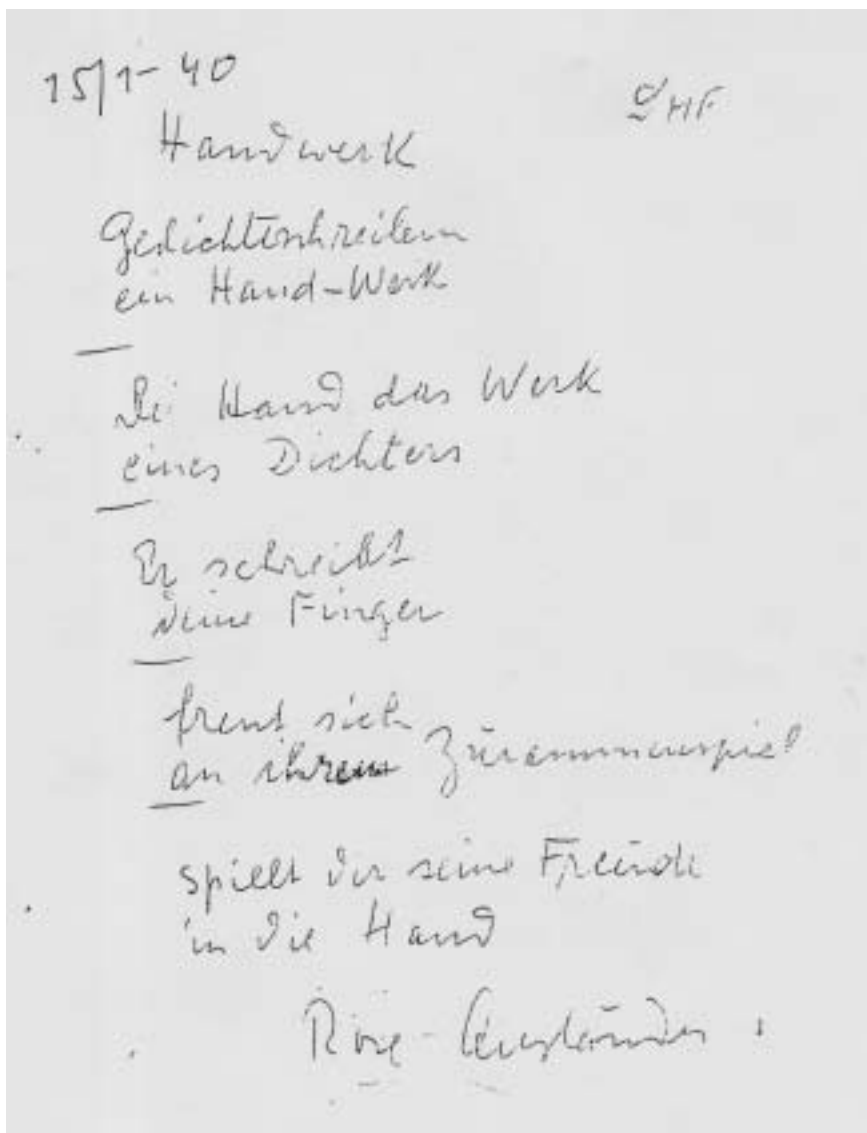 15/1-40
HF
Handwerk
Gedichteschreiben
ein Hand-Werk
Die Hand das Werk
eines Dichters
Er schreibt
deine Finger
freut sich
an ihrem Zusammenspiel
spielt dir seine Freude
in die Hand
Rose Ausländer